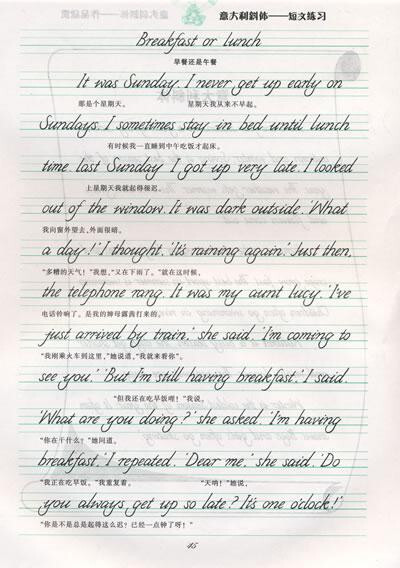 意大利斜体——短文练习
Breakfast or lunch
早餐还是午餐
It was Sunday. I never get up early on
那是个星期天。 星期天我从来不早起。
Sundays. I sometimes stay in bed until lunch
有时候我一直睡到中午吃饭才起床。
time. last Sunday I got up very late. I looked
上星期天我就起得很迟。
out of the window. It was dark outside. 'What
我向窗外望去,外面很暗。
a day!' I thought. 'It's raining again.' Just then,
"多糟的天气!"我想,"又在下雨了。"就在这时候,
the telephone rang. It was my aunt lucy. 'I've
电话铃响了。是我的婶母露茜打来的。
just arrived by train,' she said. 'I'm coming to
"我刚乘火车到这里,"她说道,"我就来看你"。
see you.' 'But I'm still having breakfast,' I said.
"但我还在吃早饭哩!"我说。
'What are you doing?' she asked. 'I'm having
"你在干什么?"她问道。
breakfast,' I repeated. 'Dear me,' she said. 'Do
"我正在吃早饭。"我重复着。 "天呐!"她说,
you always get up so late? It's one o'clock!'
"你是不是总是起得这么迟?已经一点钟了呀!"
45